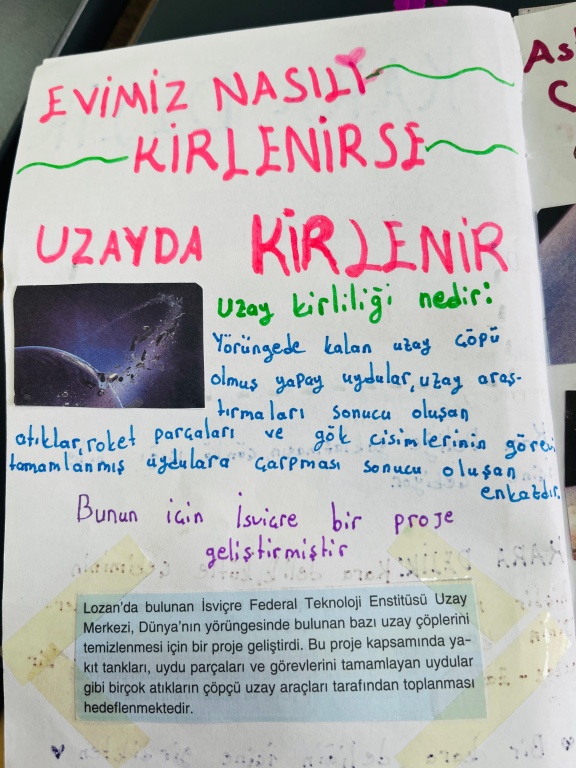 EVİMİZ NASILI
KİRLENİRSE
UZAYDA KİRLENİR
Uzay kirliliği nedir:
Yörüngede kalan uzay çöpü
olmuş yapay uydular, uzay araş-
tırmaları sonucu oluşan
atıklar, roket parçaları ve gök cisimlerinin görevi
tamamlanmış uydulara çarpması sonucu oluşan
enkatdır.
Bunun için İsviçre bir proje
geliştirmiştir
Lozan'da bulunan İsviçre Federal Teknoloji Enstitüsü Uzay
Merkezi, Dünya'nın yörüngesinde bulunan bazı uzay çöplerini
temizlenmesi için bir proje geliştirdi. Bu proje kapsamında ya-
kıt tankları, uydu parçaları ve görevlerini tamamlayan uydular
gibi birçok atıkların çöpçü uzay araçları tarafından toplanması
hedeflenmektedir.